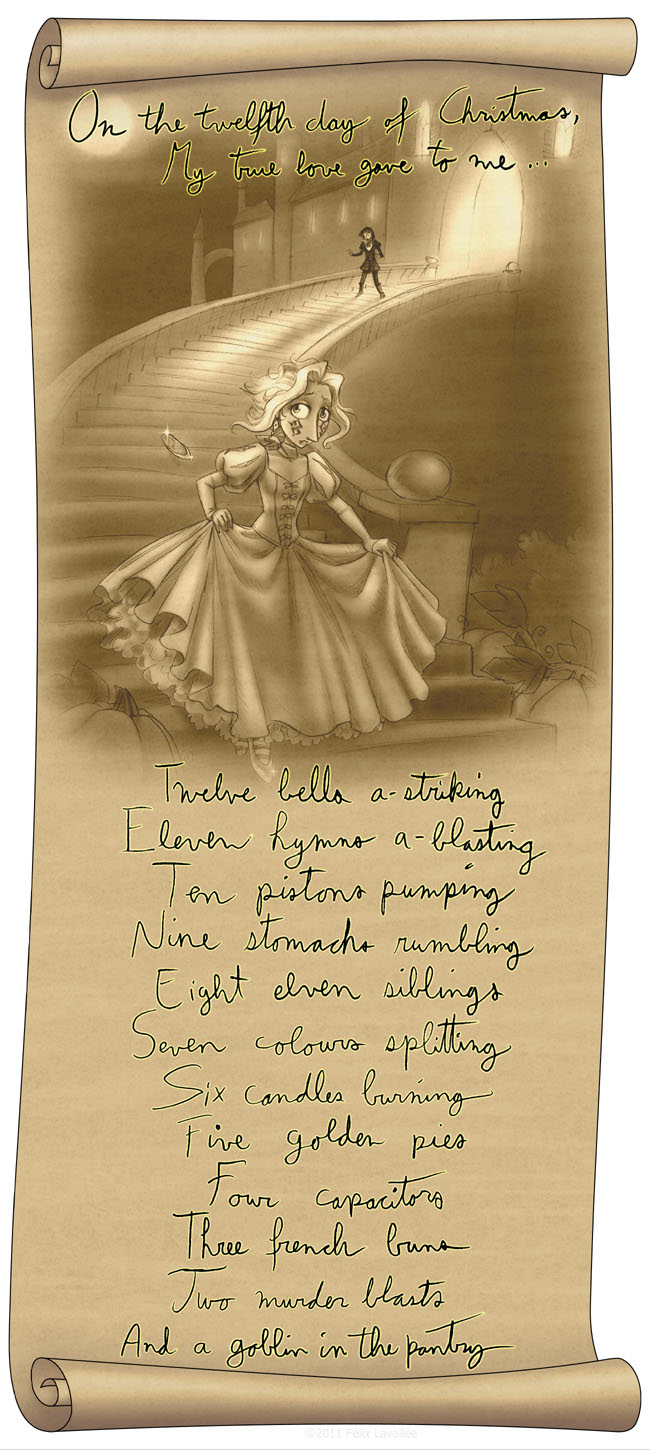 On the twelfth day of Christmas,
My true love gave to me ...
Twelve bells a-striking
Eleven hymns a-blasting
Ten pistons pumping
Nine stomachs rumbling
Eight elven siblings
Seven colours splitting
Six candles burning
Five golden pies
Four capacitors
Three french buns
Two murder blasts
And a goblin in the pantry
©2011 Félix Lavallée